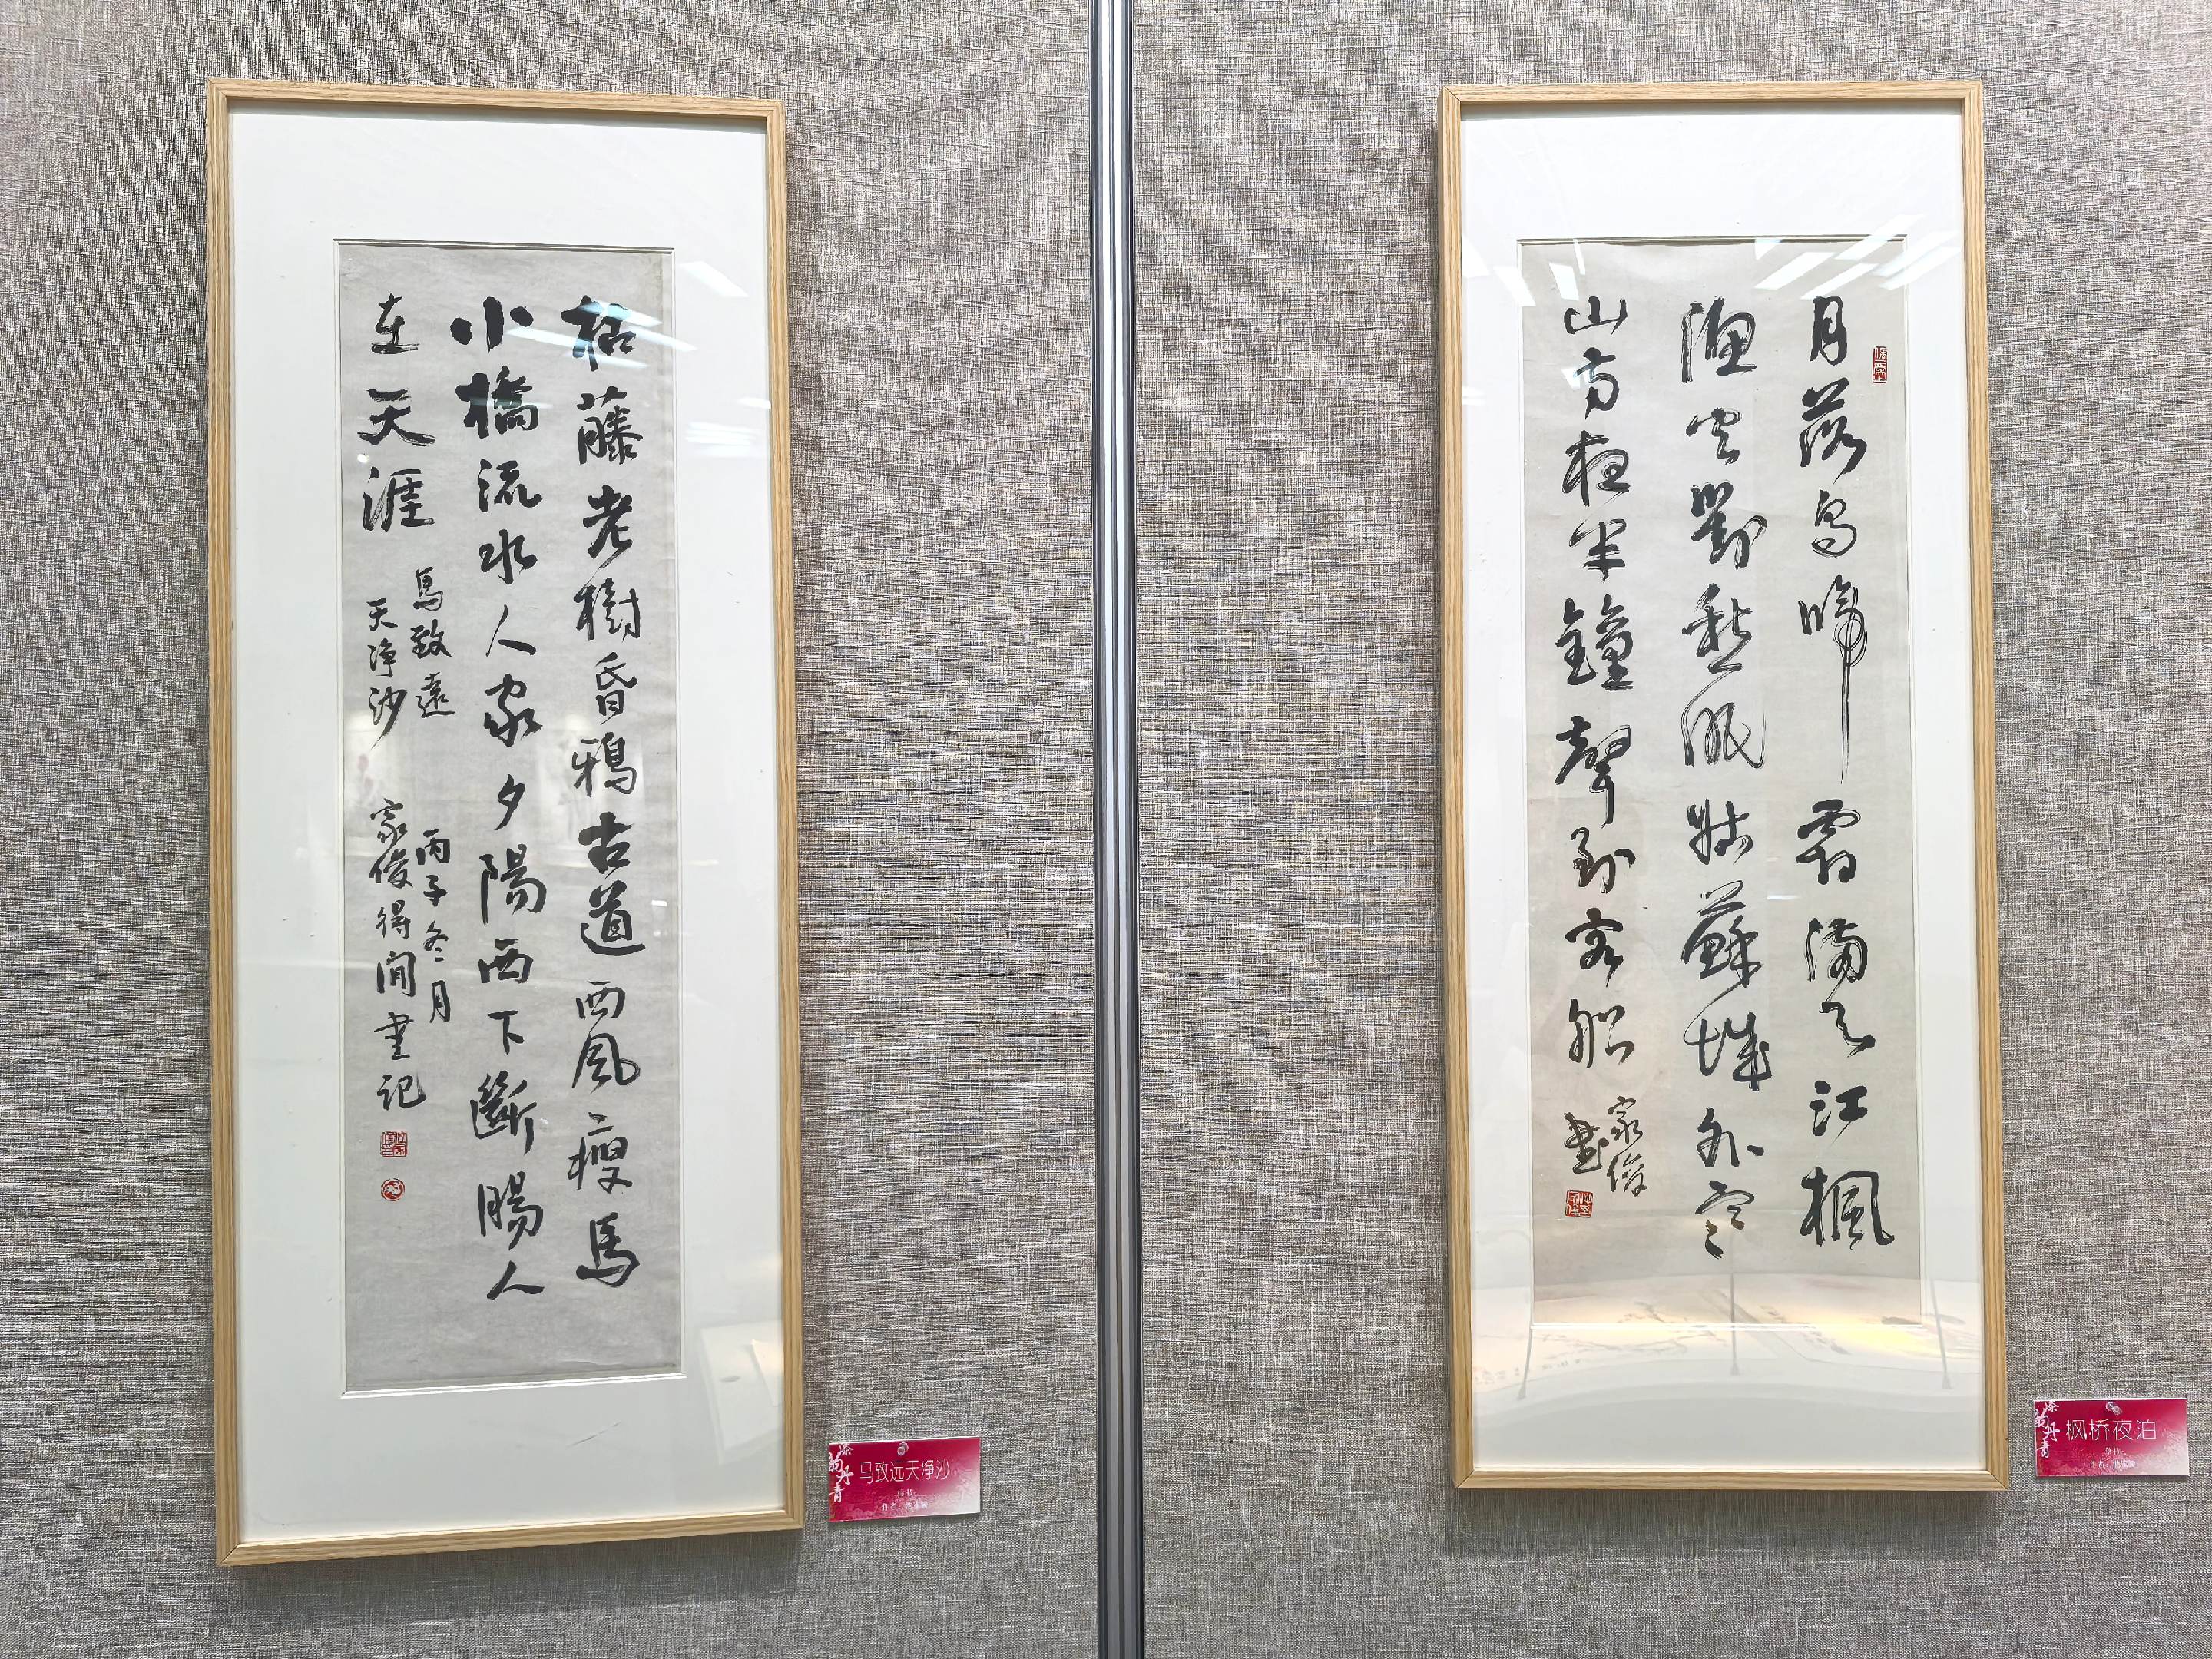 枯藤老樹昏鴉古道西風瘦馬
小橋流水人家夕陽西下斷腸人
在天涯
馬致遠
天净沙
丙子冬月
家俊得閒書記
丹青
马致远天净沙
行书
作者
月落烏啼霜滿天江楓
漁火對愁眠姑蘇城外寒
山寺夜半鐘聲到客船
家俊
書
丹青
枫桥夜泊
作者